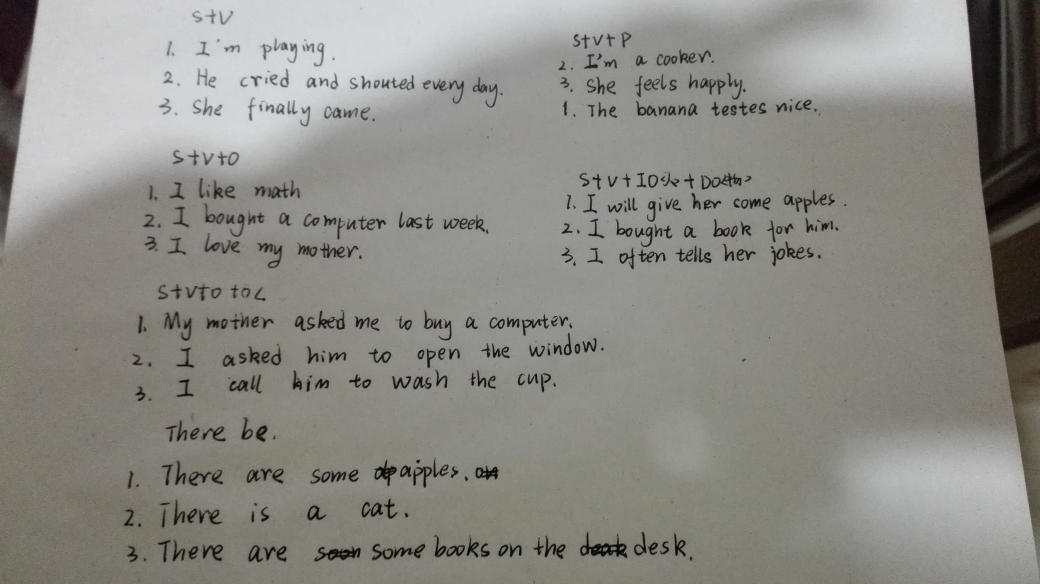 S+V
1. I'm playing.
2. He cried and shouted every day.
3. She finally came.
S+V+P
2. I'm a cooker.
3. She feels happly.
1. The banana testes nice.
S+V+O
1. I like math
2. I bought a computer last week.
3. I love my mother.
S+V+IO+DO
1. I will give her come apples.
2. I bought a book for him.
3. I often tells her jokes.
S+V+O to C
1. My mother asked me to buy a computer.
2. I asked him to open the window.
3. I call him to wash the cup.
There be.
1. There are some apples.
2. There is a cat.
3. There are some books on the desk.